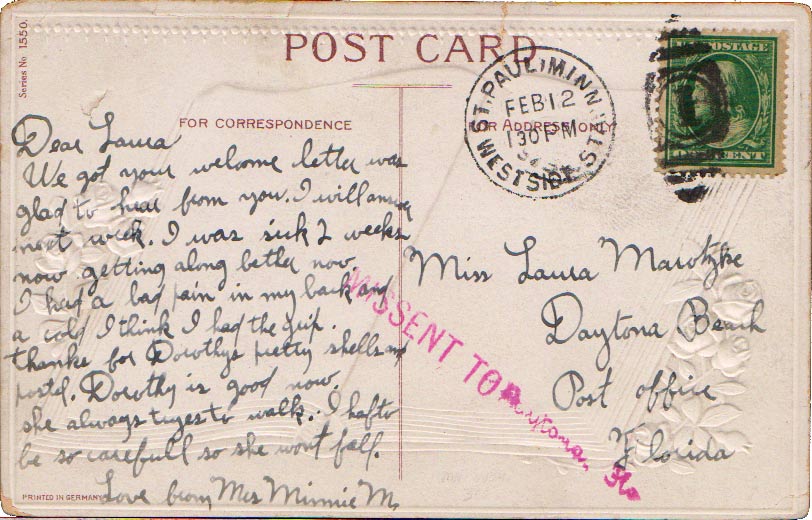 Series No 1550.
POST CARD
FOR CORRESPONDENCE
FOR ADDRESS ONLY
ST. PAUL, MINN.
FEB 12
130 PM
WEST SIDE STA.
U.S. POSTAGE
ONE CENT
Dear Laura
We got your welcome letter was
glad to hear from you. I will answer
next week. I was sick 2 weeks
now getting along better now
I had a bad pain in my back and
a cold I think I had the grip.
thanks for Dorothys pretty shells and
postd. Dorothy is good now.
she always tryes to walk. I hafto
be so carefull so she wont fall.
Love from Mrs Minnie M.
Miss Laura Marotzke
Daytona Beach
Post office
Florida
MISSENT TO
PRINTED IN GERMANY